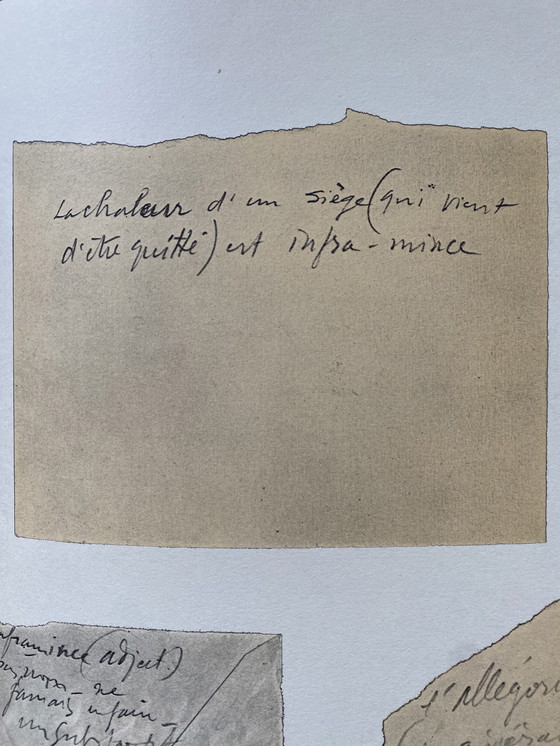 La chaleur d'un siège (qui vient
d'être quitté) est infra-mince
inframince (adject.)
pas nom – ne
jamais en faire
un substantif
l'allégorie